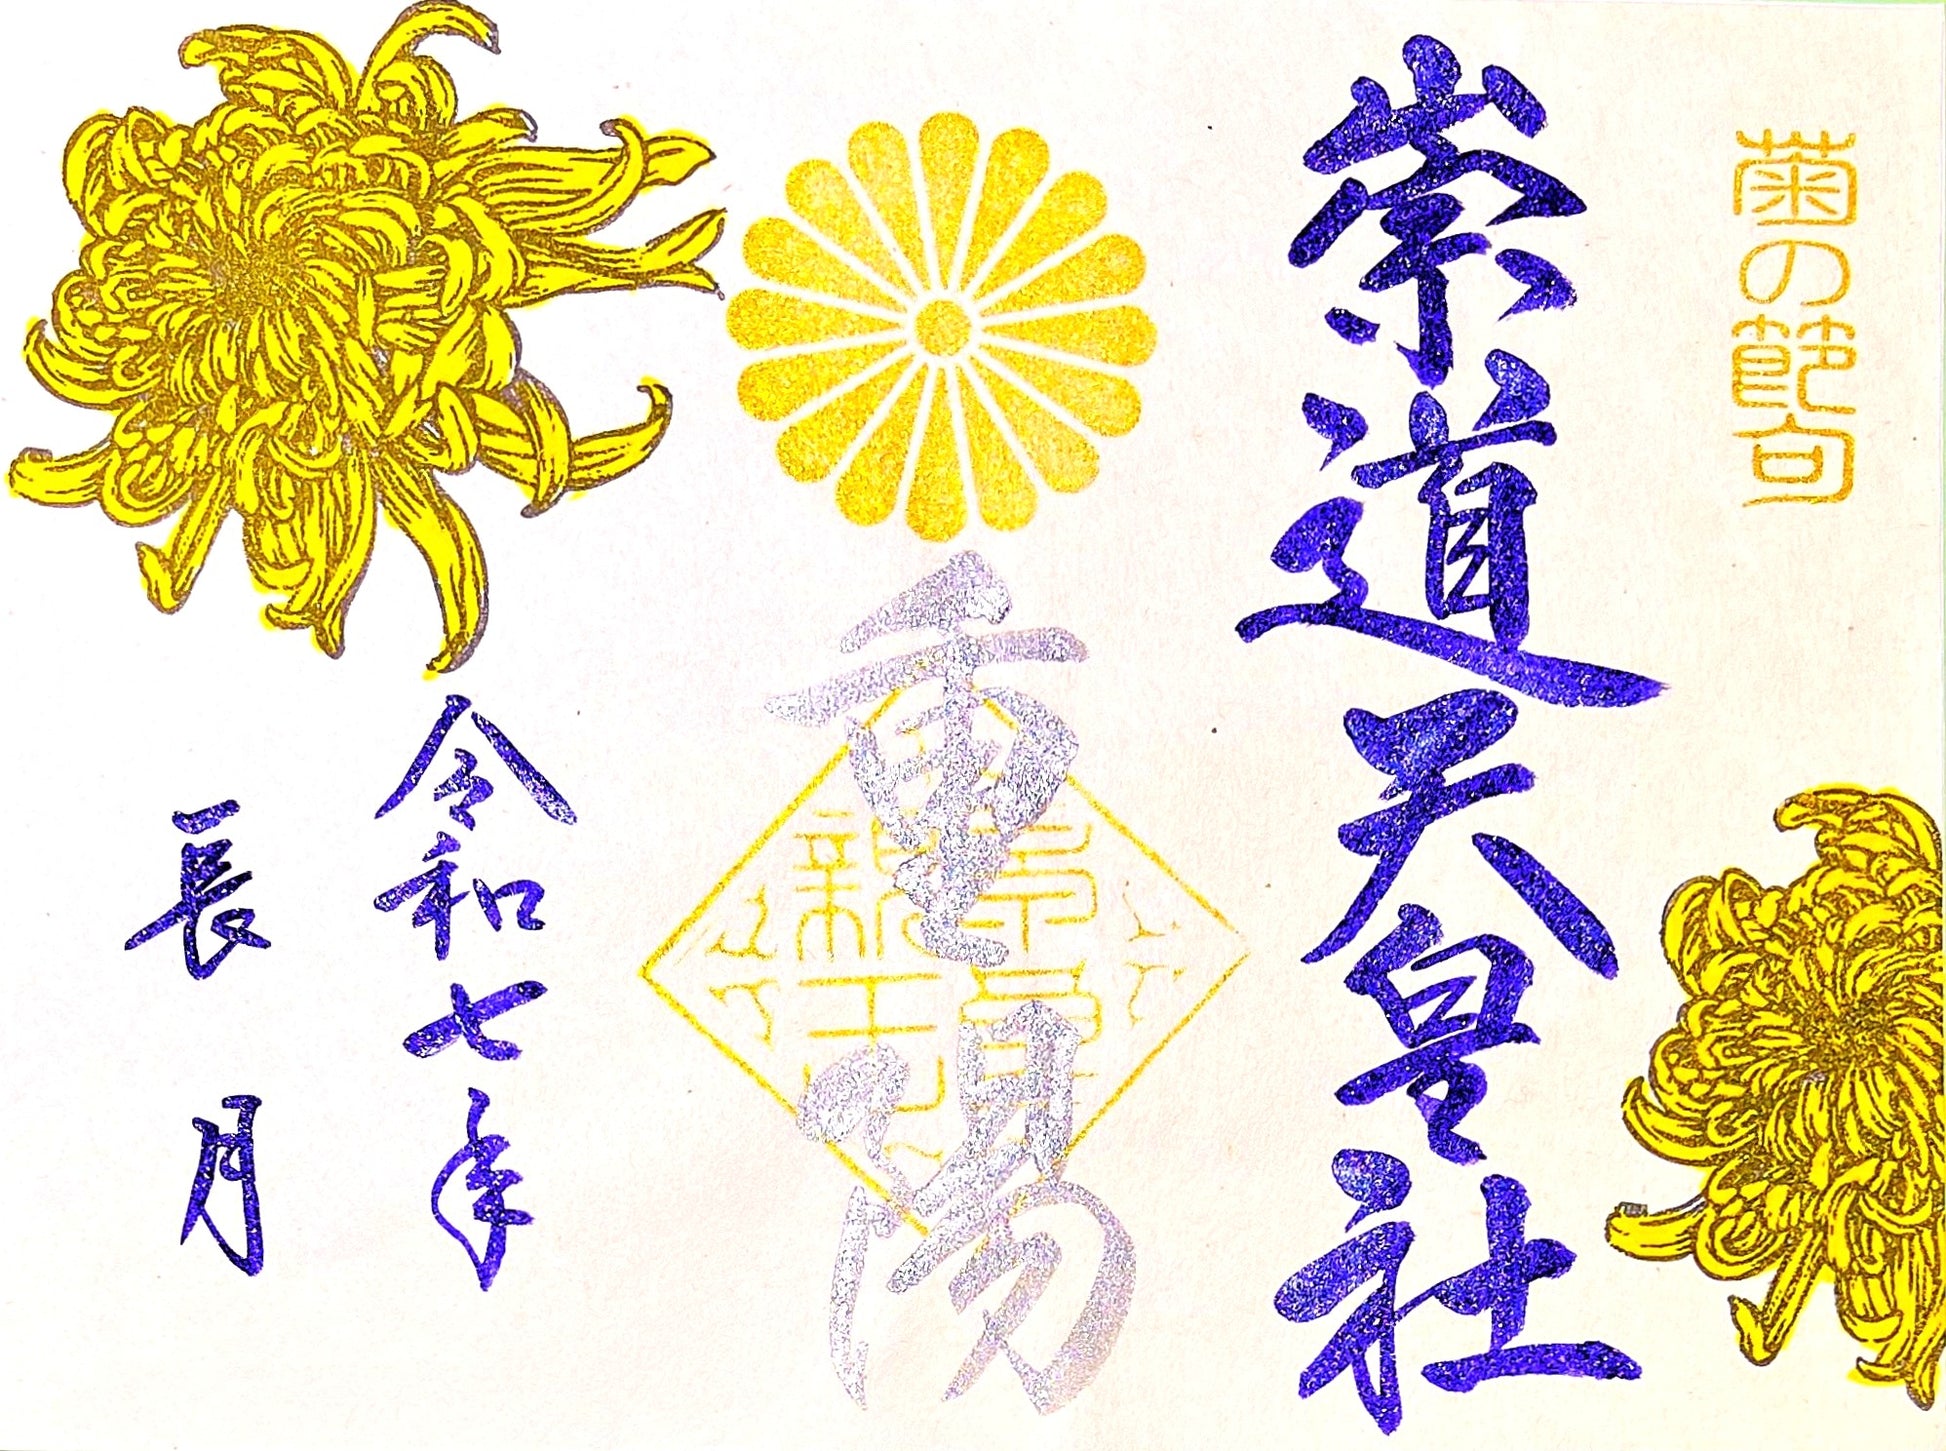 菊の節句
崇道天皇社
重陽
令和七年
長月